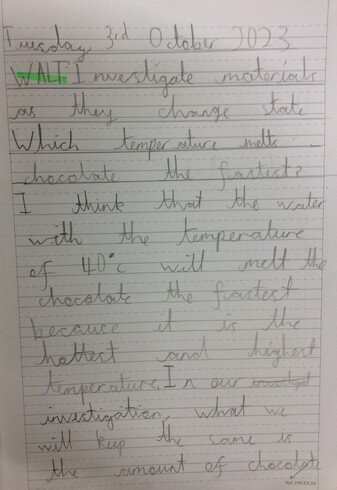 Tuesday 3rd October 2023
WALT Investigate materials
as they change state
Which temperature melts
chocolate the fastest?
I think that the water
with the temperature
of 40°c will melt the
chocolate the fastest
because it is the
hottest and highest
temperature. In our
investigation, what we
will keep the same is
the amount of chocolate